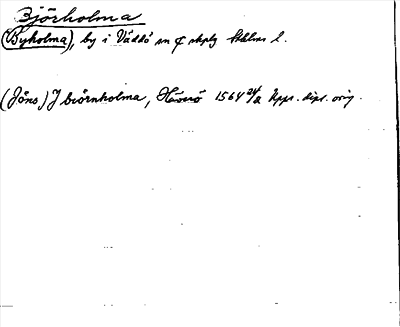 Björholma
(Byholma), by i Väddö sn ¢ skplg Sthlms l.
(Jöns) J biörnholma, Häverö 1564 24/2 Upps. dipl. orig.